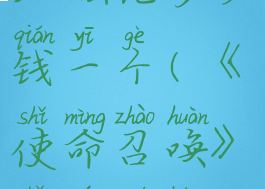 qián yī gè
钱一个(《
shǐ mìng zhào huàn
使命召唤》